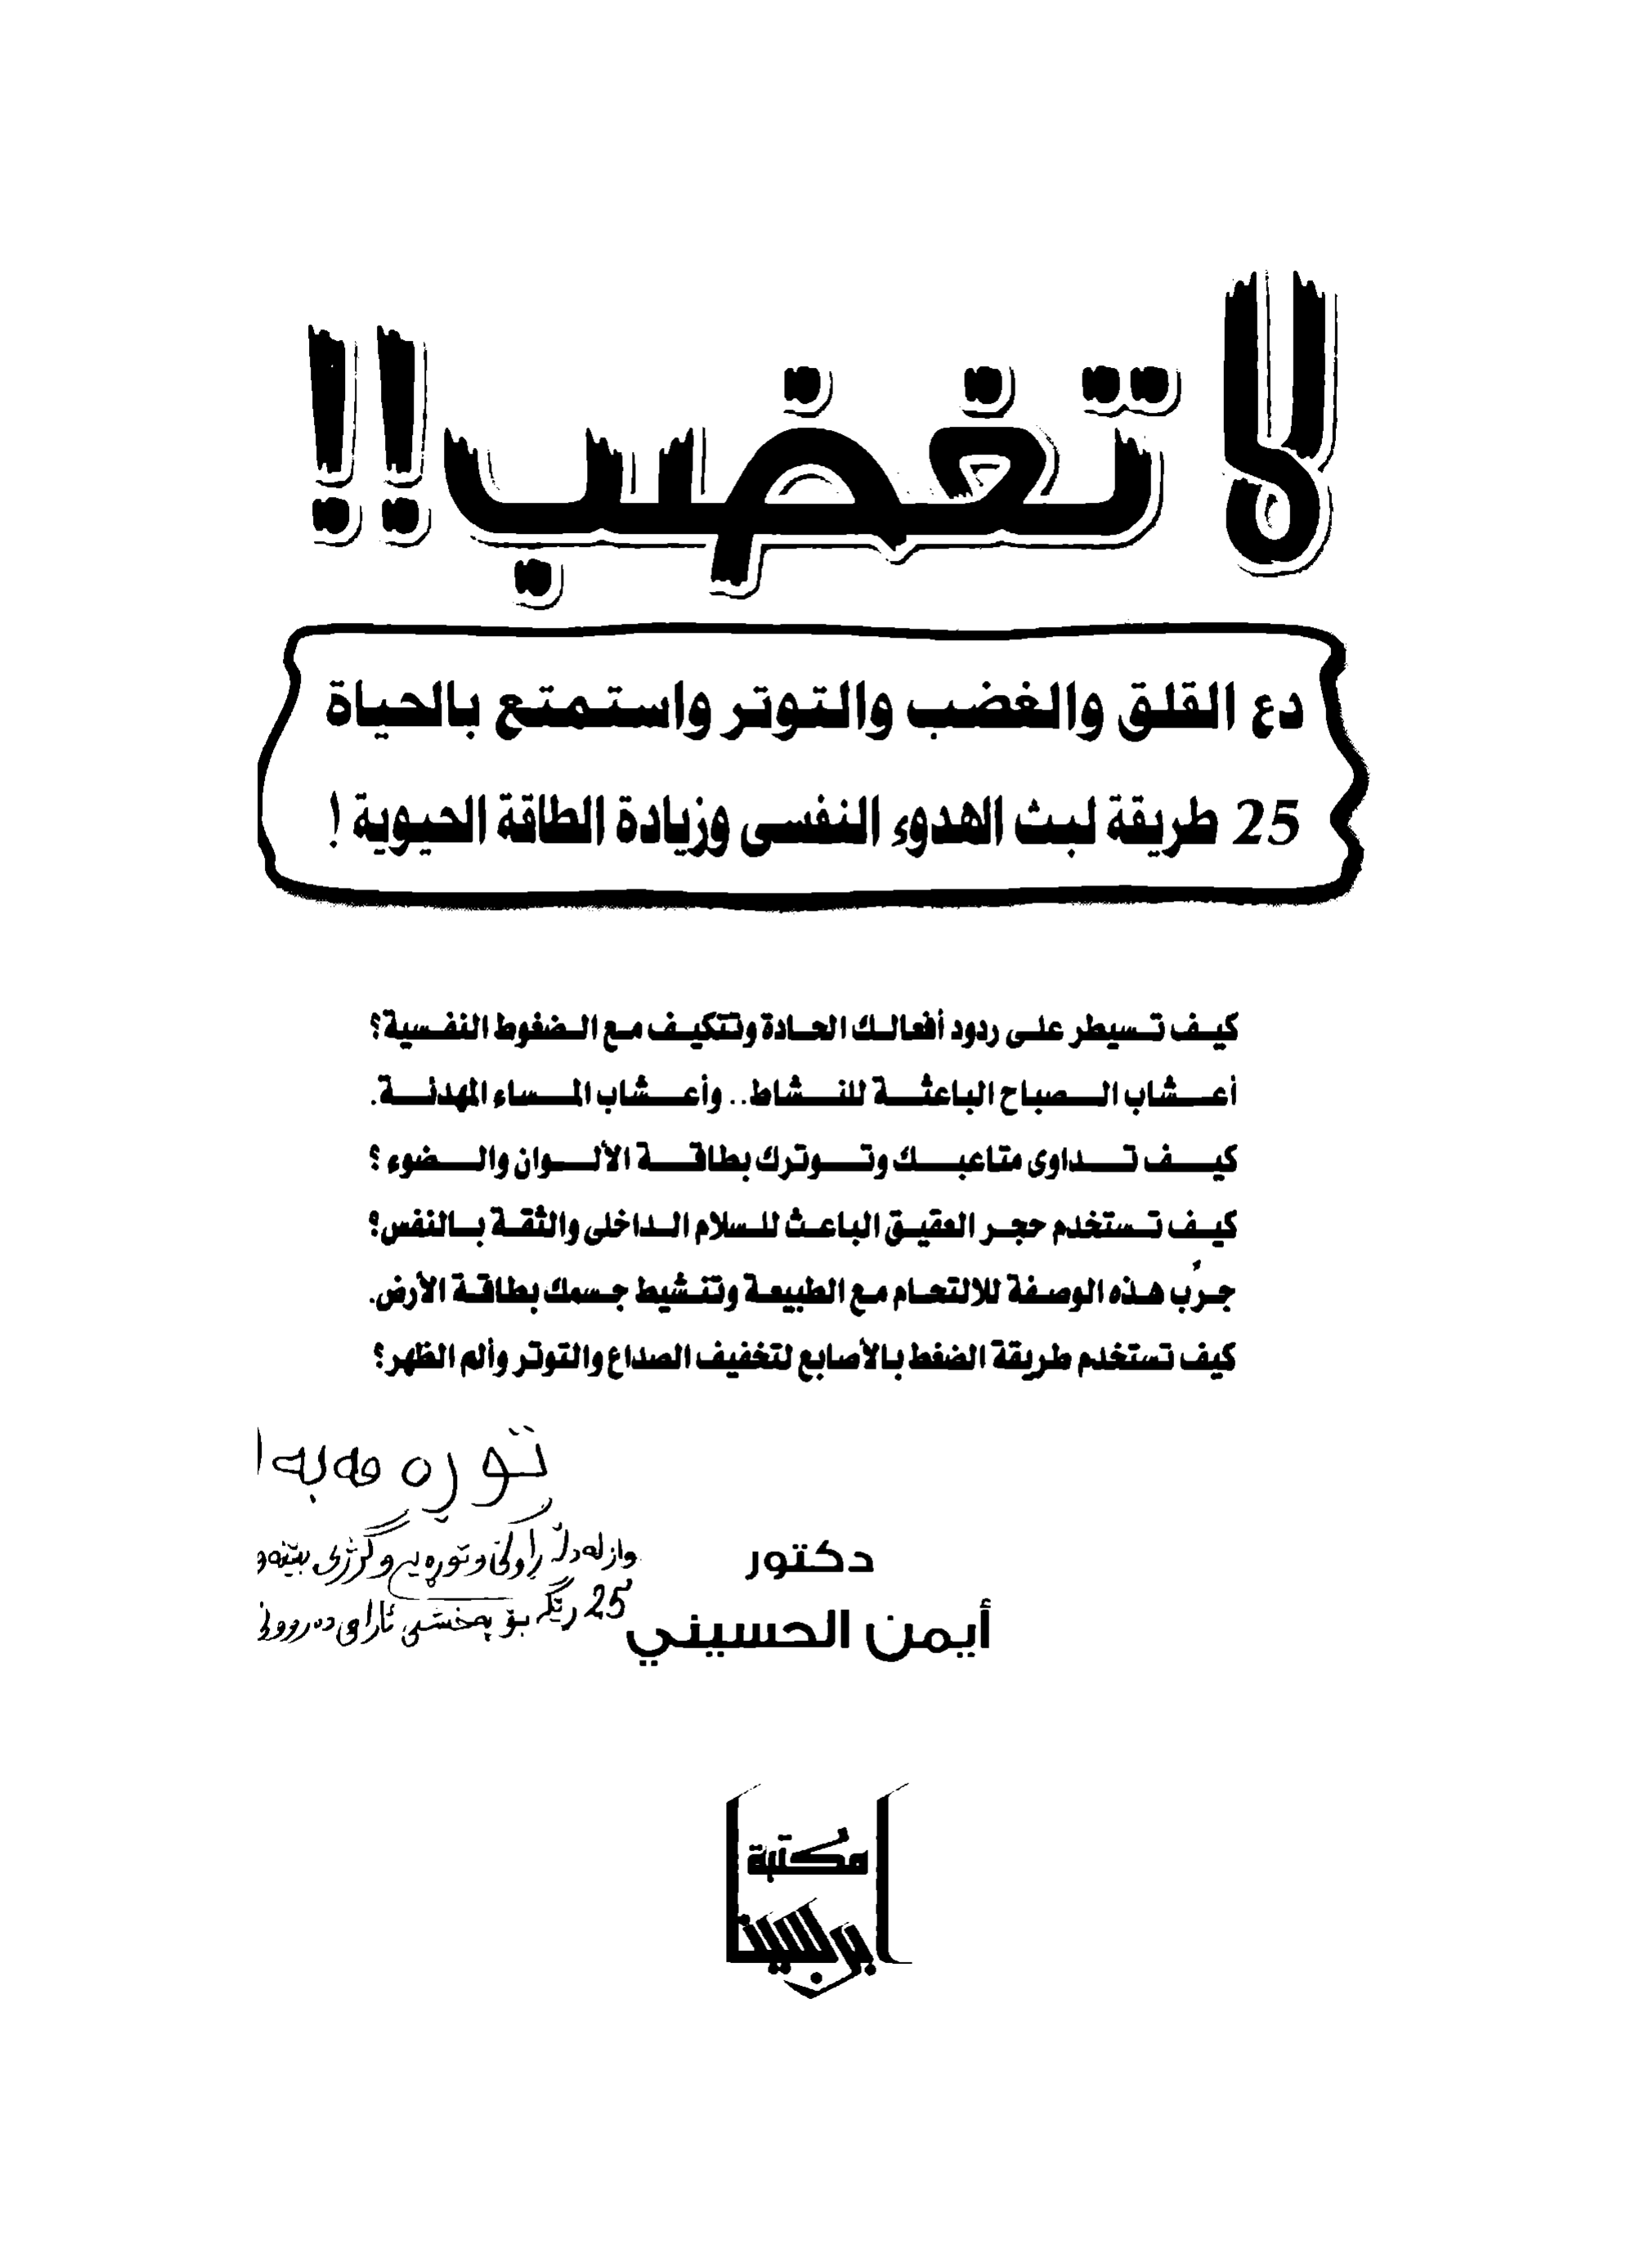 لا تغضب!!
دع القلق والغضب والتوتر واستمتع بالحياة
25 طريقة لبث الهدوء النفسى وزيادة الطاقة الحيوية !
كيف تسيطر على ردود أفعالك الحادة وتتكيف مع الضغوط النفسية؟
أعشاب الصباح الباعثة للنشاط.. وأعشاب المساء المهدئة.
كيف تداوى متاعبك وتوترك بطاقة الألوان والضوء ؟
كيف تستخدم حجر العقيق الباعث للسلام الداخلى والثقة بالنفس؟
جرِّب هذه الوصفة للالتحام مع الطبيعة وتنشيط جسمك بطاقة الأرض.
كيف تستخدم طريقة الضغط بالأصابع لتخفيف الصداع والتوتر وألم الظهر؟
تورِه مەبە!
واز لە دڵەڕاوکێ و تورِەیی و گرژی بێنە و
25 رێگە بۆ بەخشینی ئارامی دەروونی
دكتور
أيمن الحسيني
مكتبة
ابن سينا